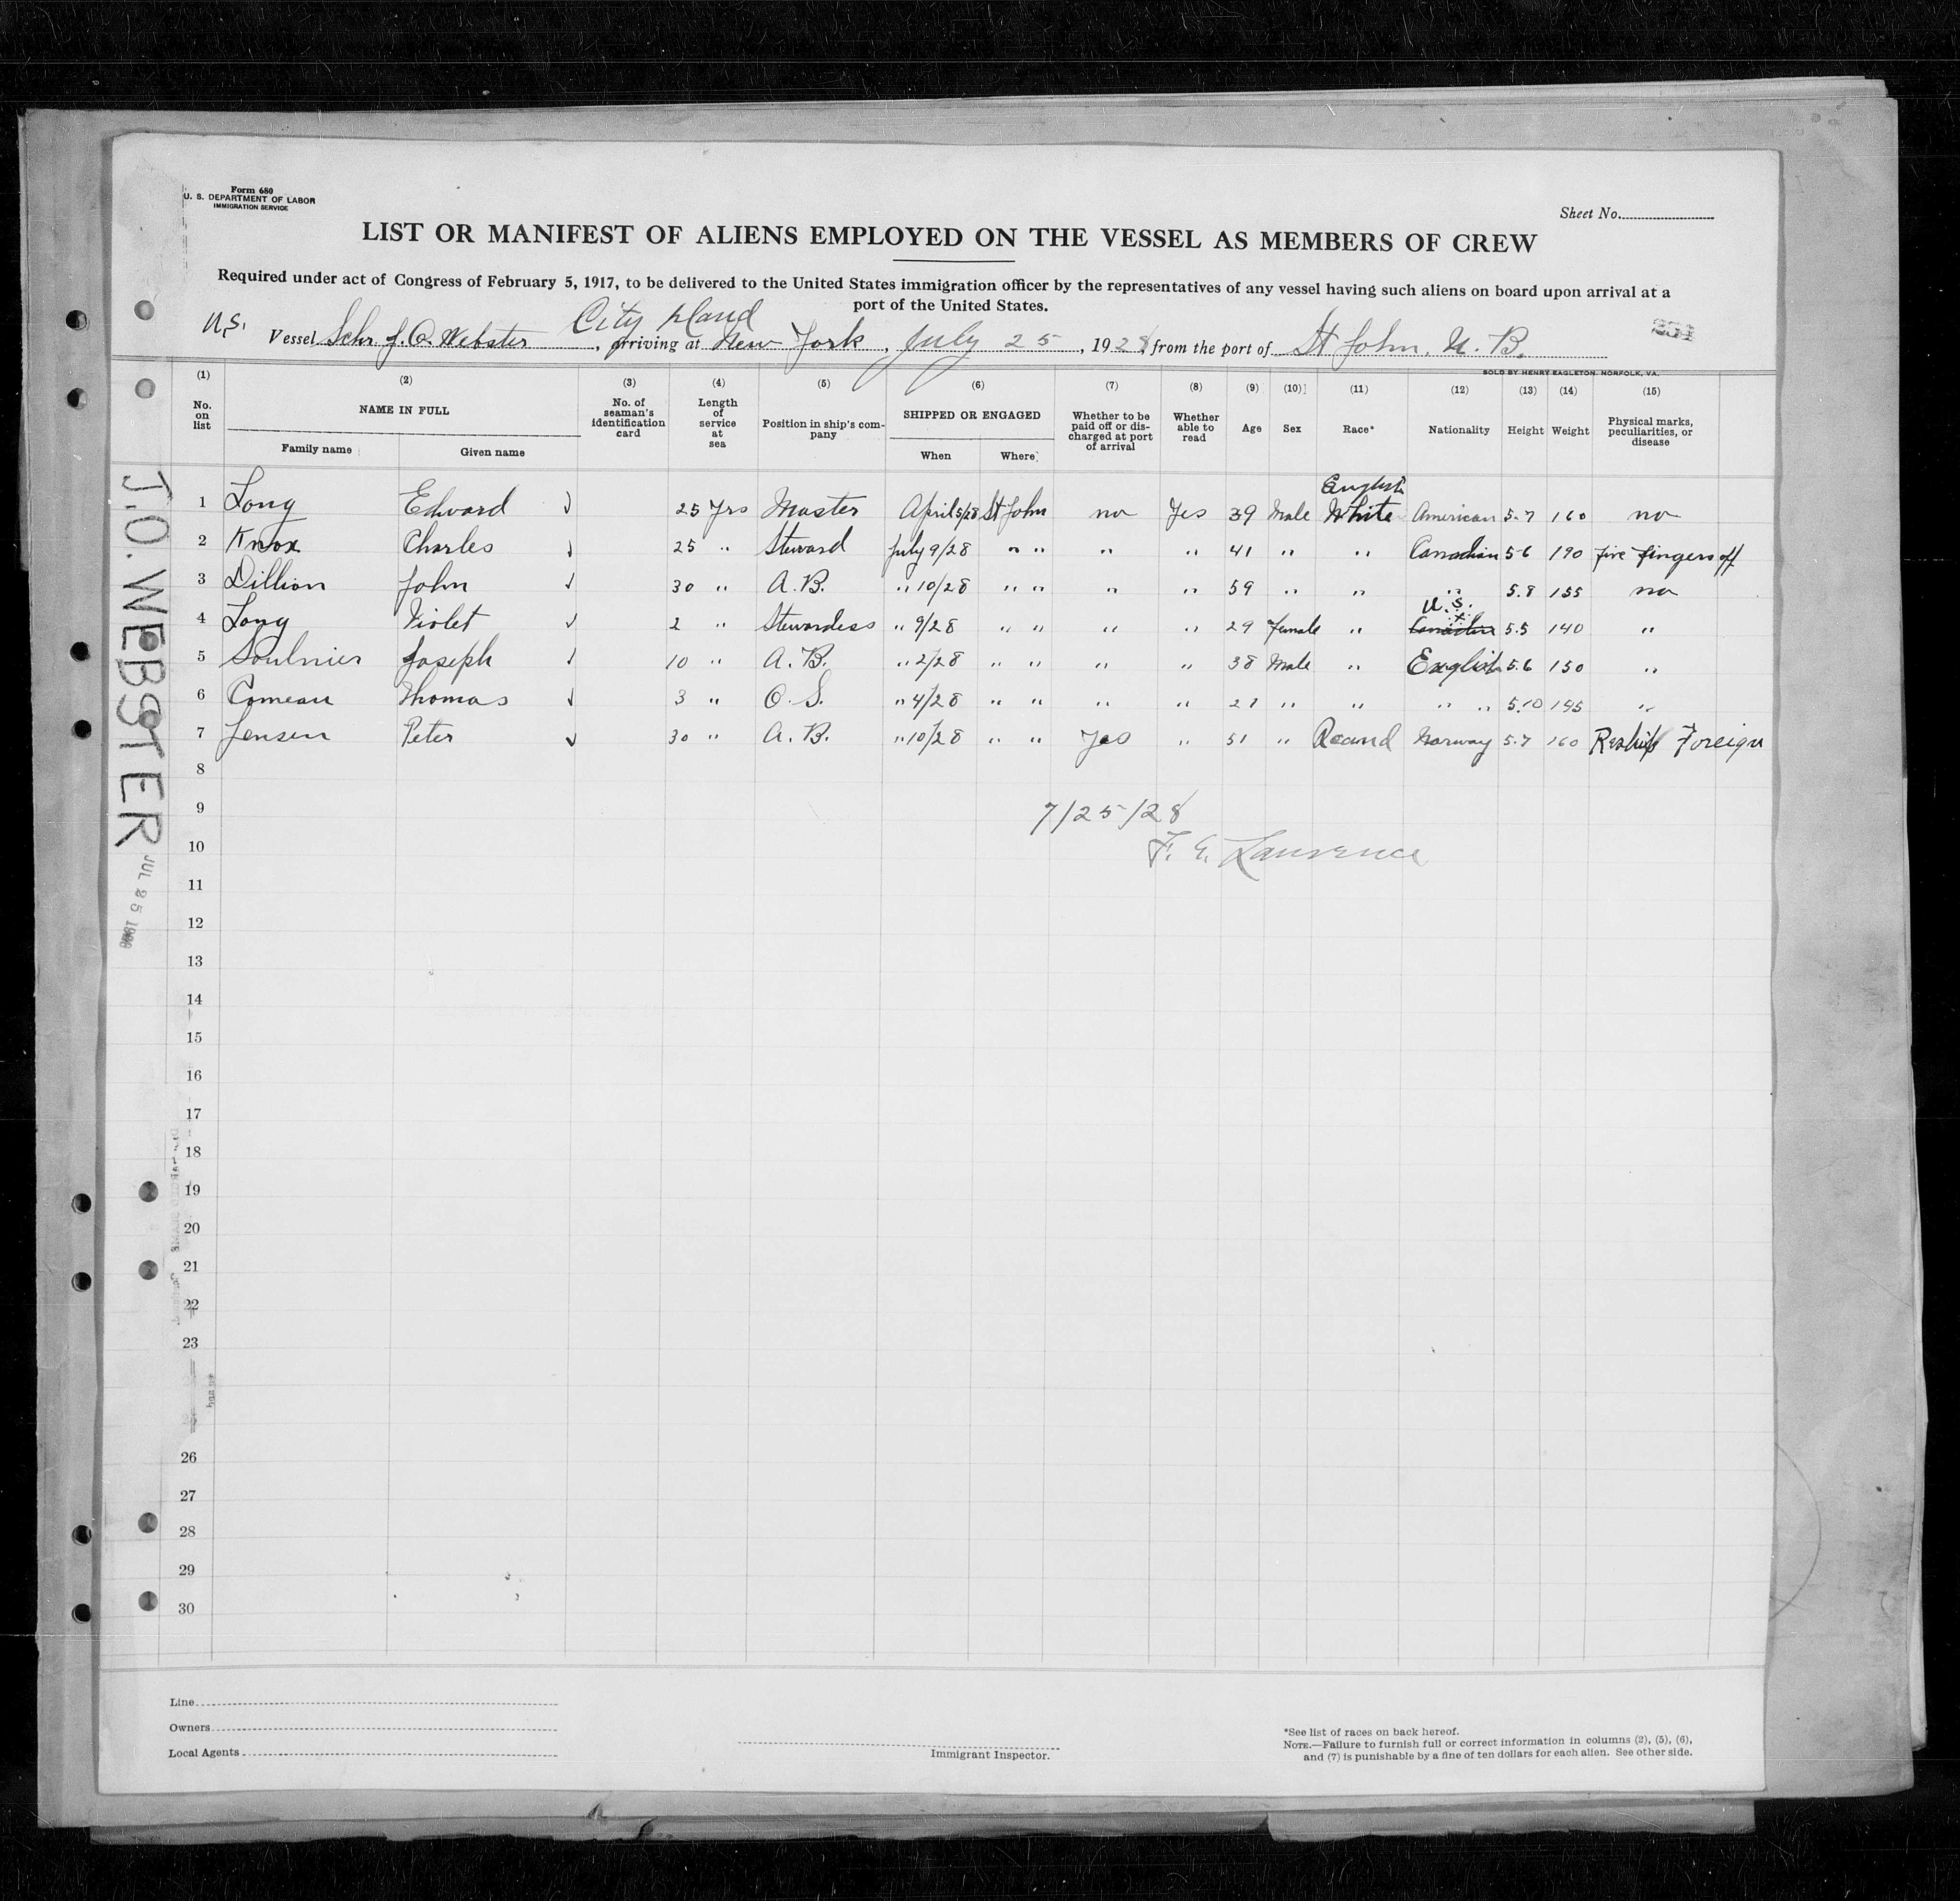 Form 680
U. S. DEPARTMENT OF LABOR
IMMIGRATION SERVICE
Sheet No.
LIST OR MANIFEST OF ALIENS EMPLOYED ON THE VESSEL AS MEMBERS OF CREW
Required under act of Congress of February 5, 1917, to be delivered to the United States immigration officer by the representatives of any vessel having such aliens on board upon arrival at a
port of the United States.
City Island
U.S. Vessel Schr. J. O. Webster, arriving at New York, July 25, 1928, from the port of St John, N. B.
SOLD BY HENRY EAGLETON, NORFOLK, VA.
(1) (2) (3) (4) (5) (6) (7) (8) (9) (10) (11) (12) (13) (14) (15)
No. on list
NAME IN FULL
Family name
Given name
No. of seaman's identification card
Length of service at sea
Position in ship's company
SHIPPED OR ENGAGED
When
Where
Whether to be paid off or discharged at port of arrival
Whether able to read
Age
Sex
Race*
Nationality
Height
Weight
Physical marks, peculiarities, or disease
English
1 Long Edward 25 Yrs Master April 5/28 St John no Yes 39 Male White American 5.7 160 no
2 Knox Charles 25 " Steward July 9/28 " " " " 41 " " Canadian 5-6 190 five fingers off
3 Dillion John 30 " A.B. " 10/28 " " " " 59 " " " 5.8 155 no
U.S.
4 Long Violet 2 " Stewardess " 9/28 " " " " 29 Female " Canadian 5.5 140 "
5 Soulnier Joseph 10 " A.B. " 2/28 " " " " 38 Male " English 5.6 150 "
6 Comeau Thomas 3 " O.S. " 4/28 " " " " 21 " " " " 5.10 145 "
7 Jensen Peter 30 " A.B. " 10/28 " " Yes " 51 " Scand Norway 5.7 160 Reship Foreign
8
9
7/25/28
10
F. E. Lawrence
11
12
13
14
15
16
17
18
19
20
21
22
23
26
27
28
29
30
J.O. WEBSTER
JUL 25 1928
Line
Owners
Local Agents
Immigrant Inspector.
*See list of races on back hereof.
NOTE.—Failure to furnish full or correct information in columns (2), (5), (6),
and (7) is punishable by a fine of ten dollars for each alien. See other side.